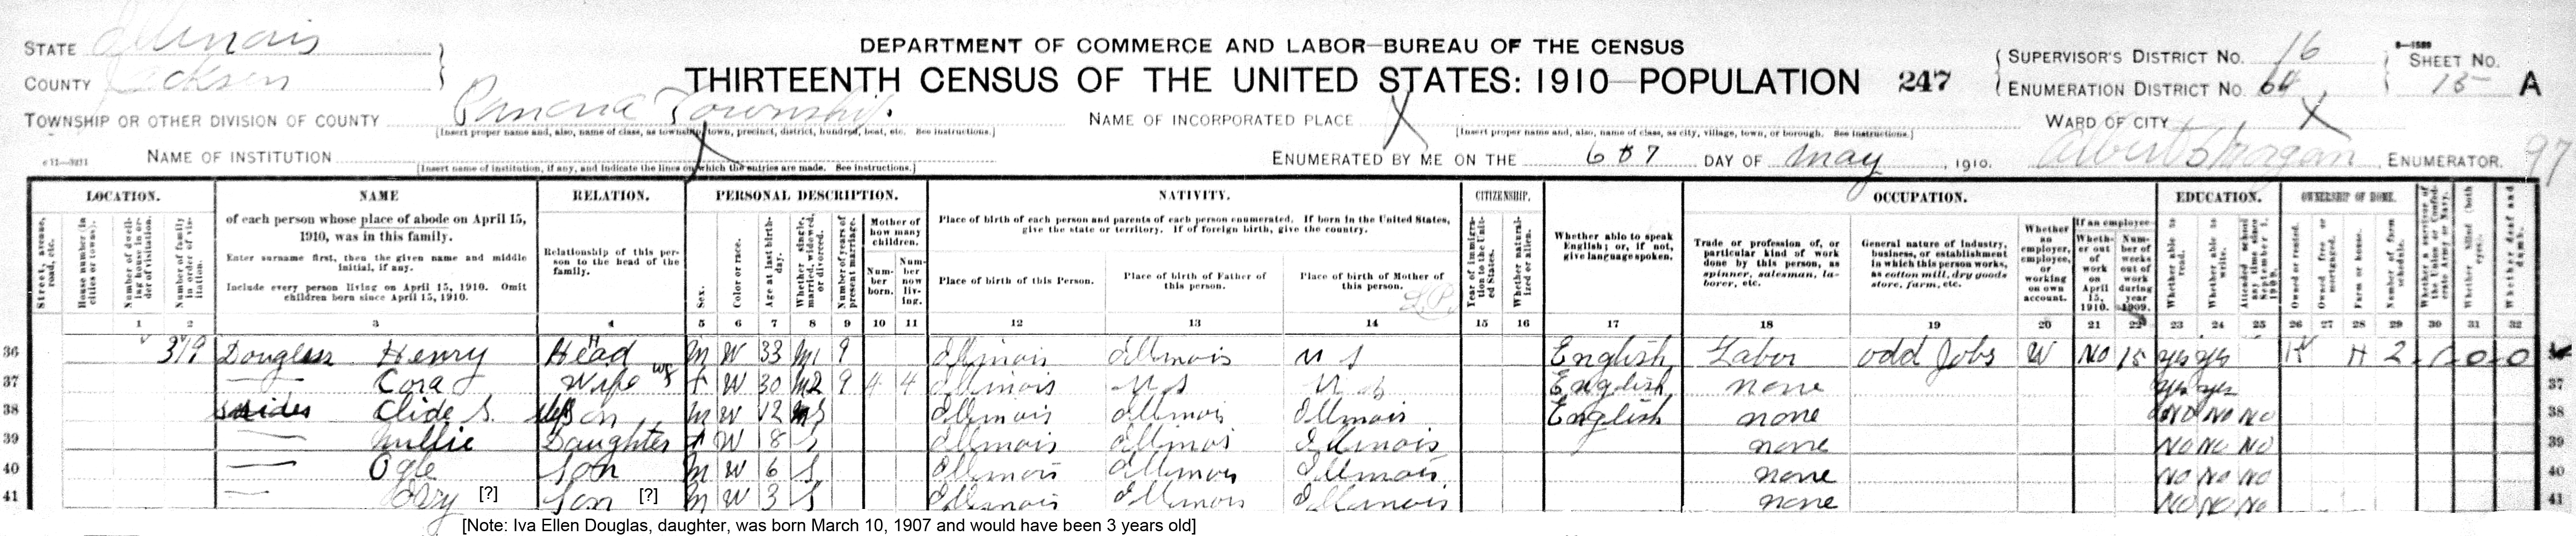 STATE Illinois
COUNTY Jackson
DEPARTMENT OF COMMERCE AND LABOR—BUREAU OF THE CENSUS
THIRTEENTH CENSUS OF THE UNITED STATES: 1910—POPULATION 247
SUPERVISOR'S DISTRICT NO. 16
ENUMERATION DISTRICT NO. 64
8—1589
SHEET NO.
15 A
TOWNSHIP OR OTHER DIVISION OF COUNTY Township.
[Insert proper name and, also, name of class, as township, town, precinct, district, hundred, beat, etc. See instructions.]
NAME OF INCORPORATED PLACE X
[Insert proper name and, also, name of class, as city, village, town, or borough. See instructions.]
WARD OF CITY X
NAME OF INSTITUTION X
[Insert name of institution, if any, and indicate the lines on which the entries are made. See instructions.]
ENUMERATED BY ME ON THE 6 & 7 DAY OF May, 1910. Albert Morgan, ENUMERATOR. 97
LOCATION. NAME RELATION. PERSONAL DESCRIPTION. NATIVITY. CITIZENSHIP. OCCUPATION. EDUCATION. OWNERSHIP OF HOME.
Street, avenue, road, etc.
House number (in cities or towns).
Number of dwelling house in order of visitation.
Number of family in order of visitation.
of each person whose place of abode on April 15, 1910, was in this family.
Enter surname first, then the given name and middle initial, if any.
Include every person living on April 15, 1910. Omit children born since April 15, 1910.
Relationship of this person to the head of the family.
Sex.
Color or race.
Age at last birthday.
Whether single, married, widowed, or divorced.
Number of years of present marriage.
Mother of how many children.
Number born.
Number now living.
Place of birth of each person and parents of each person enumerated. If born in the United States, give the state or territory. If of foreign birth, give the country.
Place of birth of this Person.
Place of birth of Father of this person.
Place of birth of Mother of this person.
Year of immigration to the United States.
Whether naturalized or alien.
Whether able to speak English; or, if not, give language spoken.
Trade or profession of, or particular kind of work done by this person, as spinner, salesman, laborer, etc.
General nature of industry, business, or establishment in which this person works, as cotton mill, dry goods store, farm, etc.
Whether an employer, employee, or working on own account.
If an employee—
Whether out of work on April 15, 1910.
Number of weeks out of work during year 1909.
Whether able to read.
Whether able to write.
Attended school any time since September 1, 1909.
Owned or rented.
Owned free or mortgaged.
Farm or house.
Number of farm schedule.
Whether a survivor of the Union or Confederate Army or Navy.
Whether blind (both eyes).
Whether deaf and dumb.
1 2 3 4 5 6 7 8 9 10 11 12 13 14 15 16 17 18 19 20 21 22 23 24 25 26 27 28 29 30 31 32
36 319 Douglass Henry Head M W 33 M1 9 Illinois Illinois U S English Labor odd Jobs W No 15 yes yes R H
37 — Cora Wife F W 30 M2 9 4 4 Illinois U S U S English none yes yes 37
38 Clide S. Son M W 12 S Illinois Illinois Illinois English none No No No 38
39 — Daughter F W 8 S Illinois Illinois Illinois none No No No 39
40 — Ogle Son M W 6 S Illinois Illinois Illinois none No No No 40
41 — [?] Son [?] M W 3 S Illinois Illinois Illinois none No No No 41
[Note: Iva Ellen Douglas, daughter, was born March 10, 1907 and would have been 3 years old]